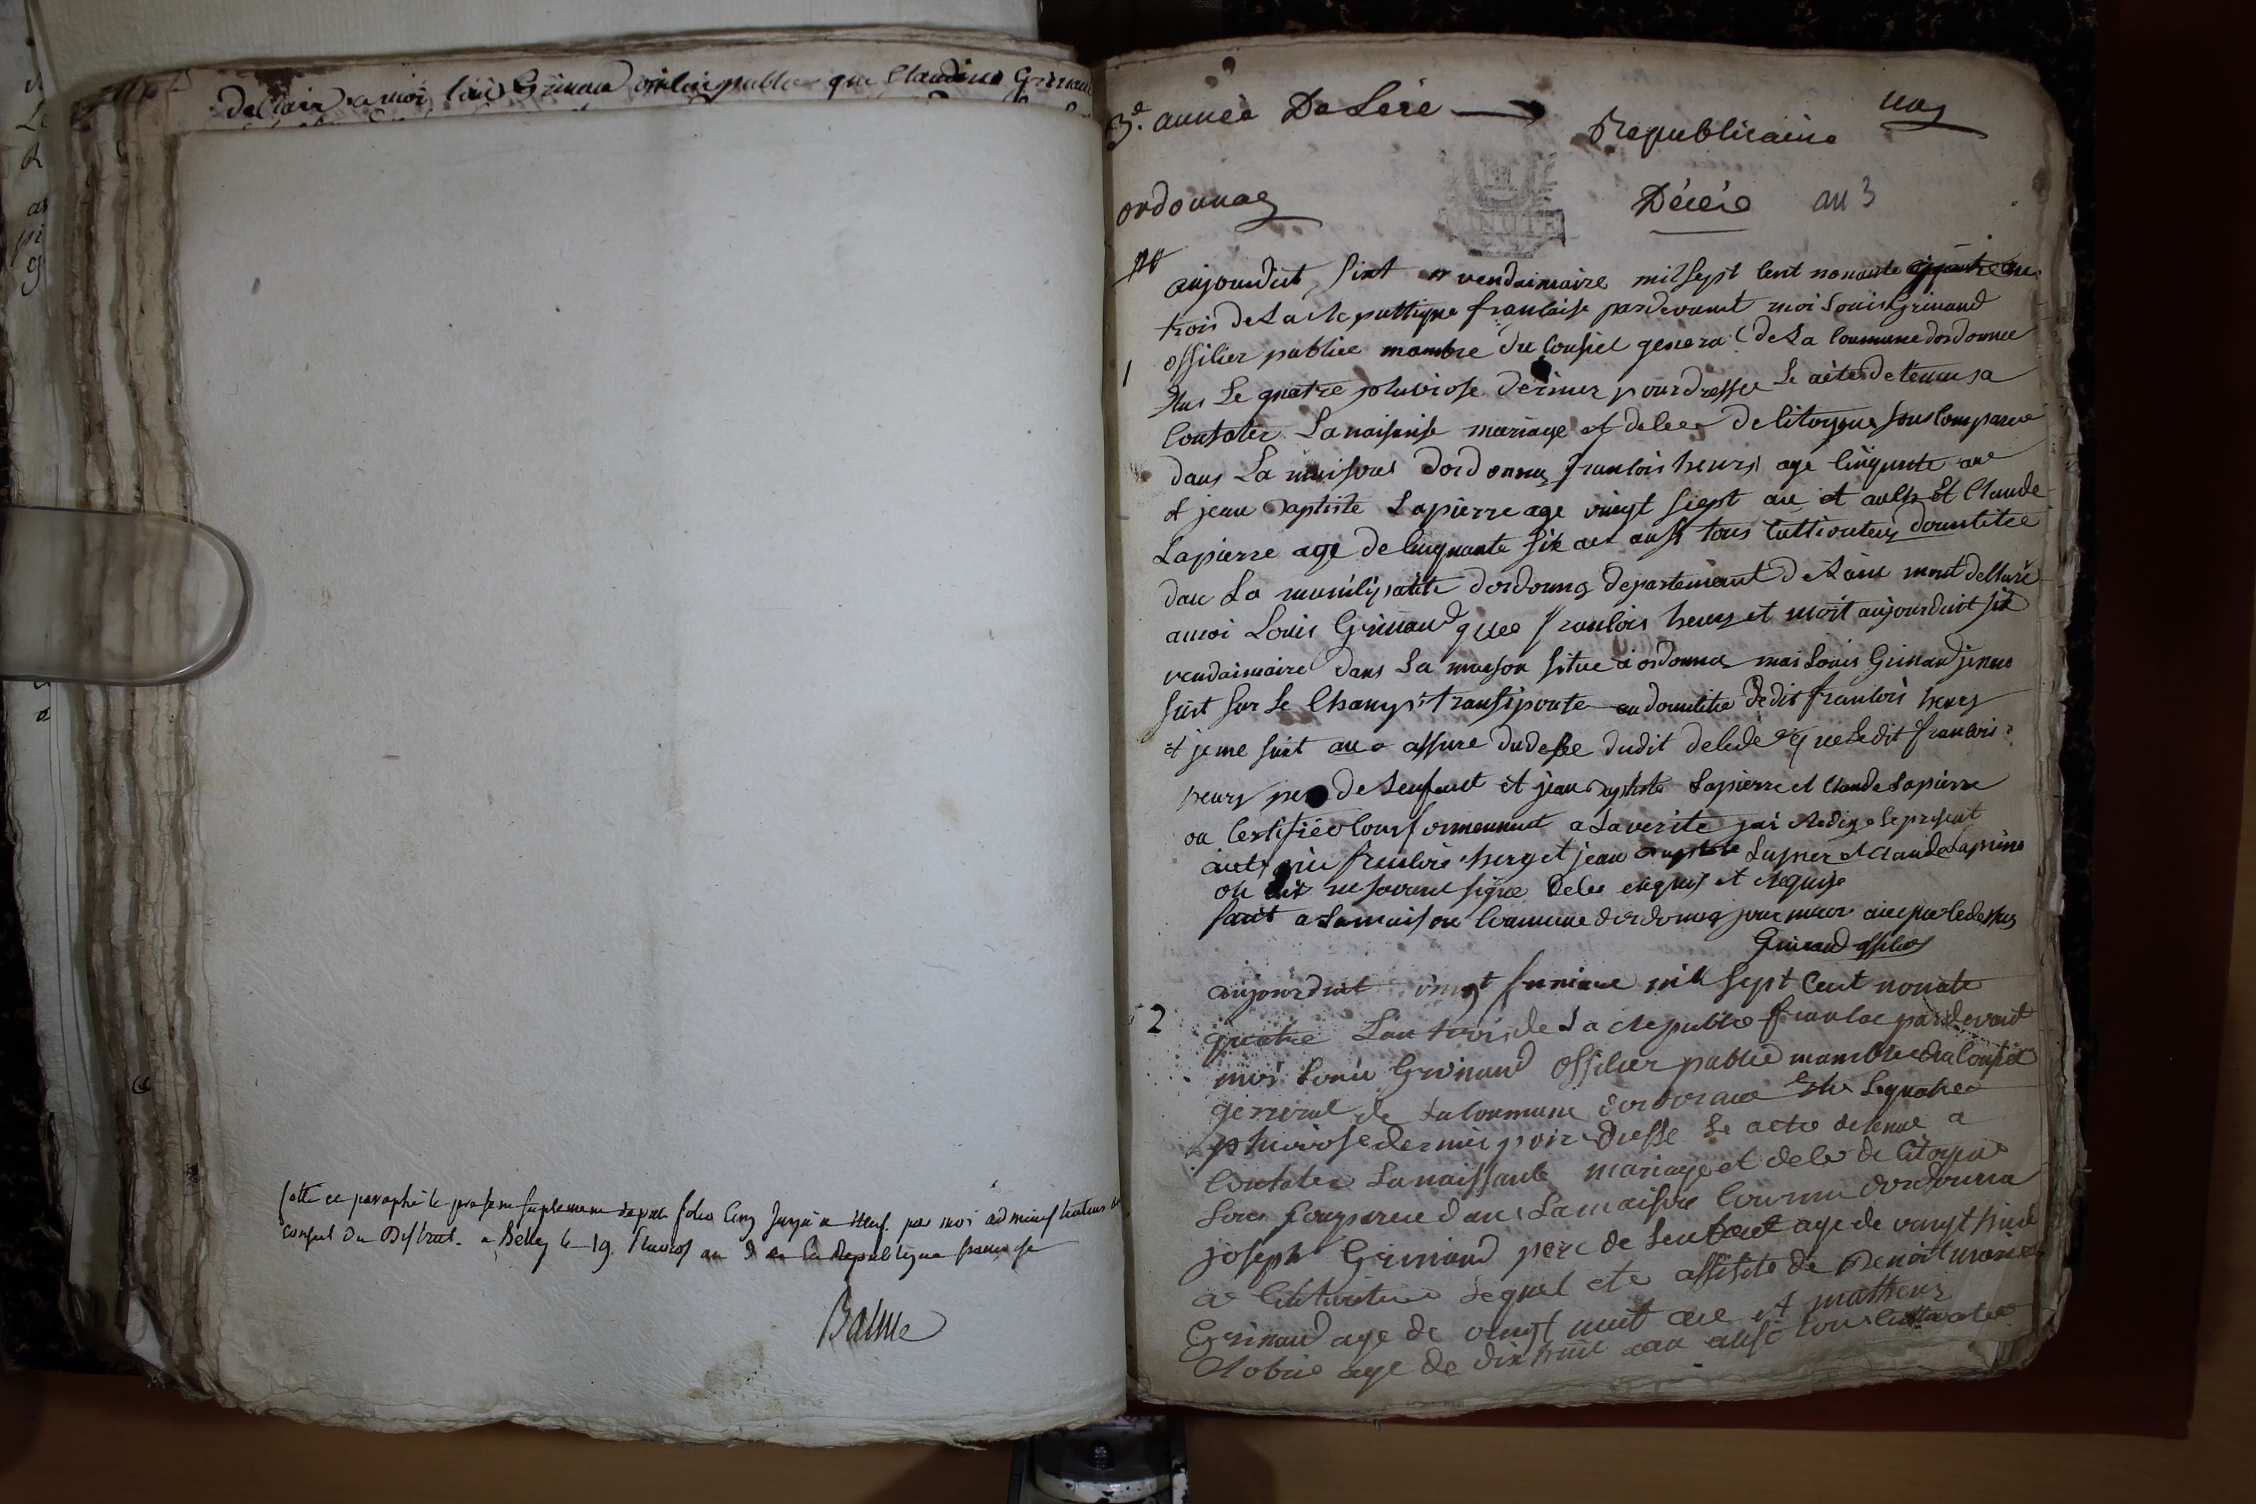 declaré a moi louis Grinand officier public que Claudine Grinand
cotte et paraphé le present suplement depuis folio cinq jusqu'a neuf par moi administrateur du
conseil du District a Belley le 19 Pluviose an 3 de la Republique francoise
Balme
3e année De Lere
Republicaine
un
ordonnaz
Décéré an 3
1
aujourduit sixt vendaimaire mil sept cent nonante
trois de La Republique francaise pardevant moi Louis Grinand
offilier publice mambre du Consiel general de La Commune dordonna
Elus Le quatre pluviose dernier pour dresser Le actes detenus a
Contater La naisanse mariage et deces de Citoyens sous Comparue
dans La maison dordonnaz francois heurs age cinquante an
et jean Baptiste Lapierre age vingt sept an et Claude
Lapierre age de cinquante six an tous cultivateurs domicilee
dans La municipalite dordonnaz departement de Lain mont dellare
a moi Louis Grinand que francois heurs et mort aujourduit six
vendaimaire dans La maison situe a ordonna moi Louis Grinand je me
suit sur Le Champ transiporte au domicile dedit francois heurs
et je me suit assure du dit decede que Ledit francois
heurs pere de Lenfant et jean Baptiste Lapierre et Claude Lapierre
on Certifiée Conformement a La verite jai Redige Le present
acte que francois heurs et jean Baptiste Lapierre et Claude Lapierre
on dit ne savoir signe de ce enquis et Requise
fait a La maison Commune dordonnaz jour mois an que cedessus
Grinand offilier
2
aujourduit vingt frimaire mil sept Cent nonate
quatre Lan trois de La Republice francaise pardevant
moi Louis Grinand offilier publice mambre du Consiel
general de La Commune dordonnaz Elus Le quatre
pluviose dernier pour dresse Le acte detenue a
Contater La naissance mariage et deces de Citoyens
sous Comparue dans La maison Commune dordonna
joseph Grinand pere de Lenfant age de vingt huit
an Cultivateur Lequel ete assiste de Benoit marie
Grinand age de vingt huit ans et mathieu
Robin age de dix huit an tous Cultivateur